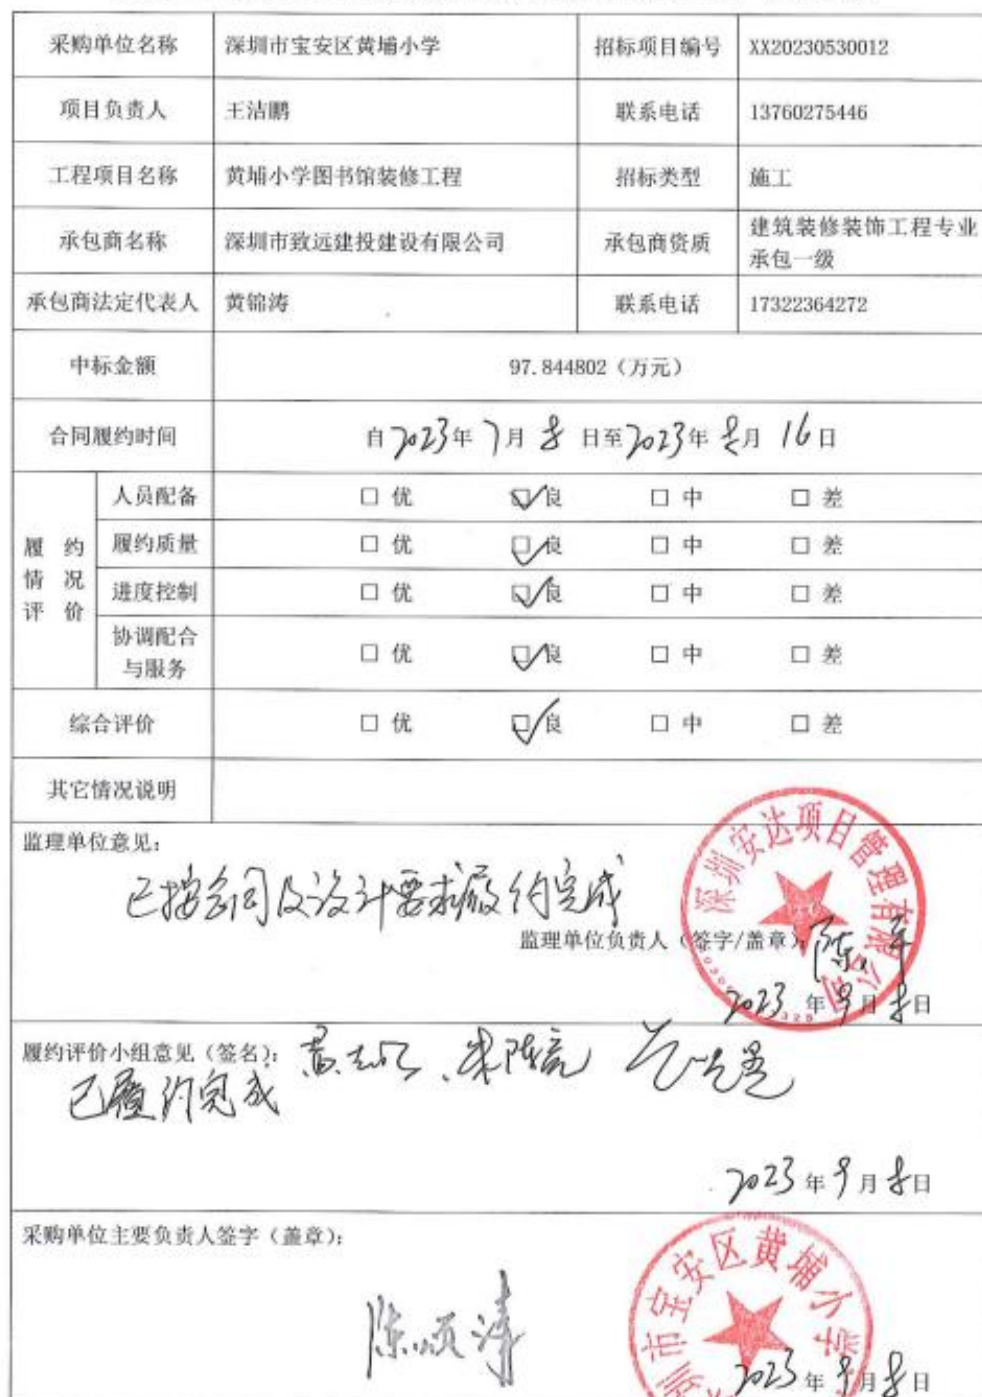 采购单位名称 深圳市宝安区黄埔小学 招标项目编号 XX20230530012
项目负责人 王洁鹏 联系电话 13760275446
工程项目名称 黄埔小学图书馆装修工程 招标类型 施工
承包商名称 深圳市致远建投建设有限公司 承包商资质 建筑装修装饰工程专业
承包一级
承包商法定代表人 黄锦涛 联系电话 17322364272
中标金额 97.844802（万元）
合同履约时间 自2023年7月8日至2023年8月16日
履约情况评价
人员配备 □ 优 ☑ 良 □ 中 □ 差
履约质量 □ 优 ☑ 良 □ 中 □ 差
进度控制 □ 优 ☑ 良 □ 中 □ 差
协调配合
与服务 □ 优 ☑ 良 □ 中 □ 差
综合评价 □ 优 ☑ 良 □ 中 □ 差
其它情况说明
监理单位意见：
已按合同及设计要求履约完成
监理单位负责人（签字/盖章）：
深圳安达项目管理有限公司
2023年9月8日
履约评价小组意见（签名）：
已履约完成
2023年9月8日
采购单位主要负责人签字（盖章）：
圳市宝安区黄埔小学
2023年9月8日